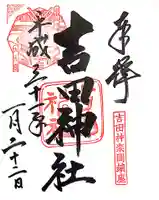 奉拝
吉田神社
平成三十一年
一月二十二日
吉田神楽岡鎮座